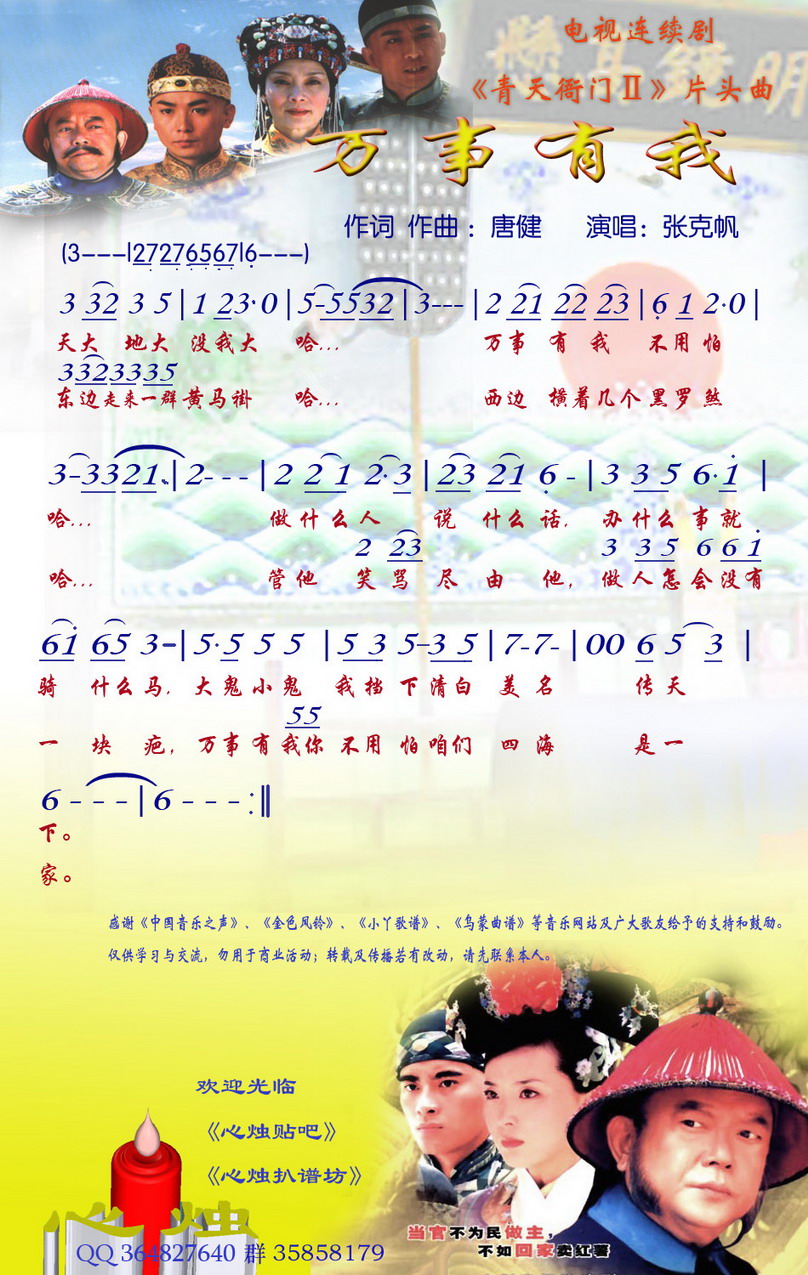 电视连续剧
《青天衙门Ⅱ》片头曲
明镜高悬
万事有我
作词 作曲：唐健 演唱：张克帆
(3---|27276567|6---)
3 32 3 5|1 23·0|5-5532|3---|2 21 22 23|6 1 2·0|
天大 地大 没我大 哈... 万事 有 我 不用怕
33233335
东边走来一群黄马褂 哈... 西边 横着几个黑罗煞
3-3321.|2---|2 2 1 2·3|23 21 6 -|3 3 5 6·1|
哈... 做什么人 说 什么话, 办什么事就
2 23 3 35 6 6 1
哈... 管他 笑骂尽由他, 做人怎会没有
61 65 3-|5·5 5 5 |5 3 5-3 5|7-7-|00 6 5 3|
骑 什么马, 大鬼小鬼 我挡下清白 美名 传天
55
一 块 疤, 万事有我你不用怕咱们 四海 是一
6 - - -|6 - - -:||
下。
家。
感谢《中国音乐之声》、《金色风铃》、《小丫歌谱》、《乌蒙曲谱》等音乐网站及广大歌友给予的支持和鼓励。
仅供学习与交流，勿用于商业活动；转载及传播若有改动，请先联系本人。
欢迎光临
《心烛贴吧》
《心烛扒谱坊》
心烛
QQ 364827640 群 35858179
当官不为民做主，
不如回家卖红薯